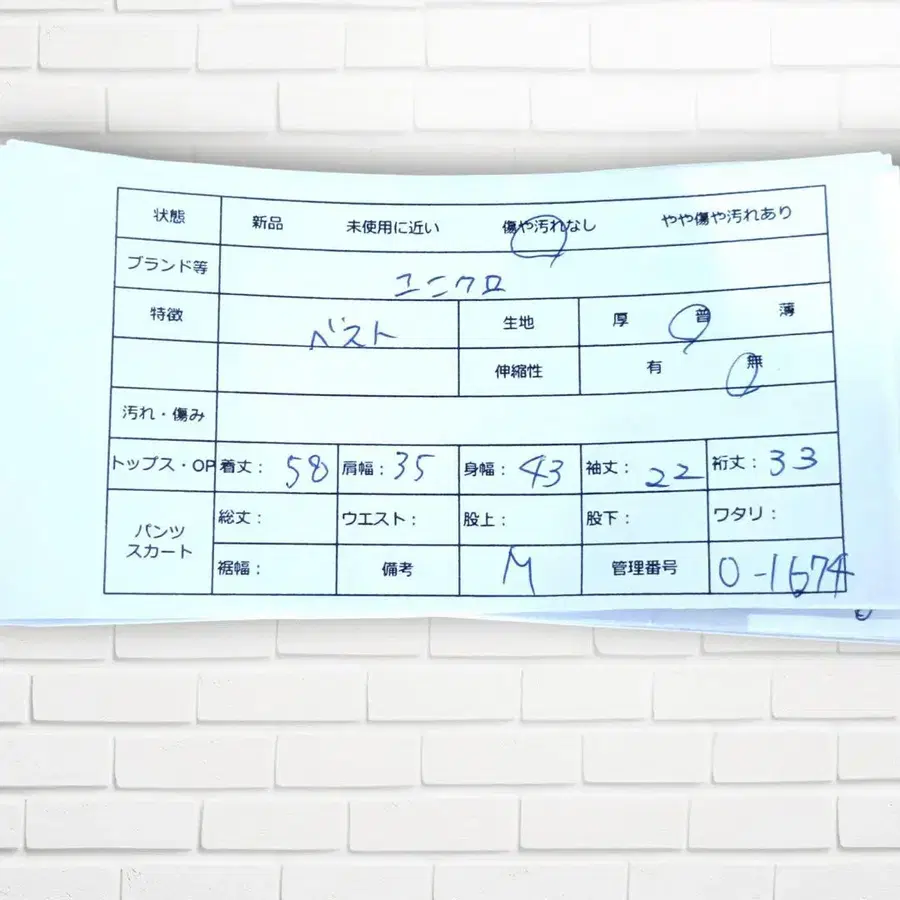 状態 新品 未使用に近い 傷や汚れなし やや傷や汚れあり
ブランド等 ユニクロ
特徴 ベスト 生地 厚 普 薄
伸縮性 有 無
汚れ・傷み
トップス・OP 着丈： 58 肩幅：35 身幅：43 袖丈：22 裄丈：33
パンツ スカート 総丈： ウエスト： 股上： 股下： ワタリ：
裾幅： 備考 M 管理番号 0-1674